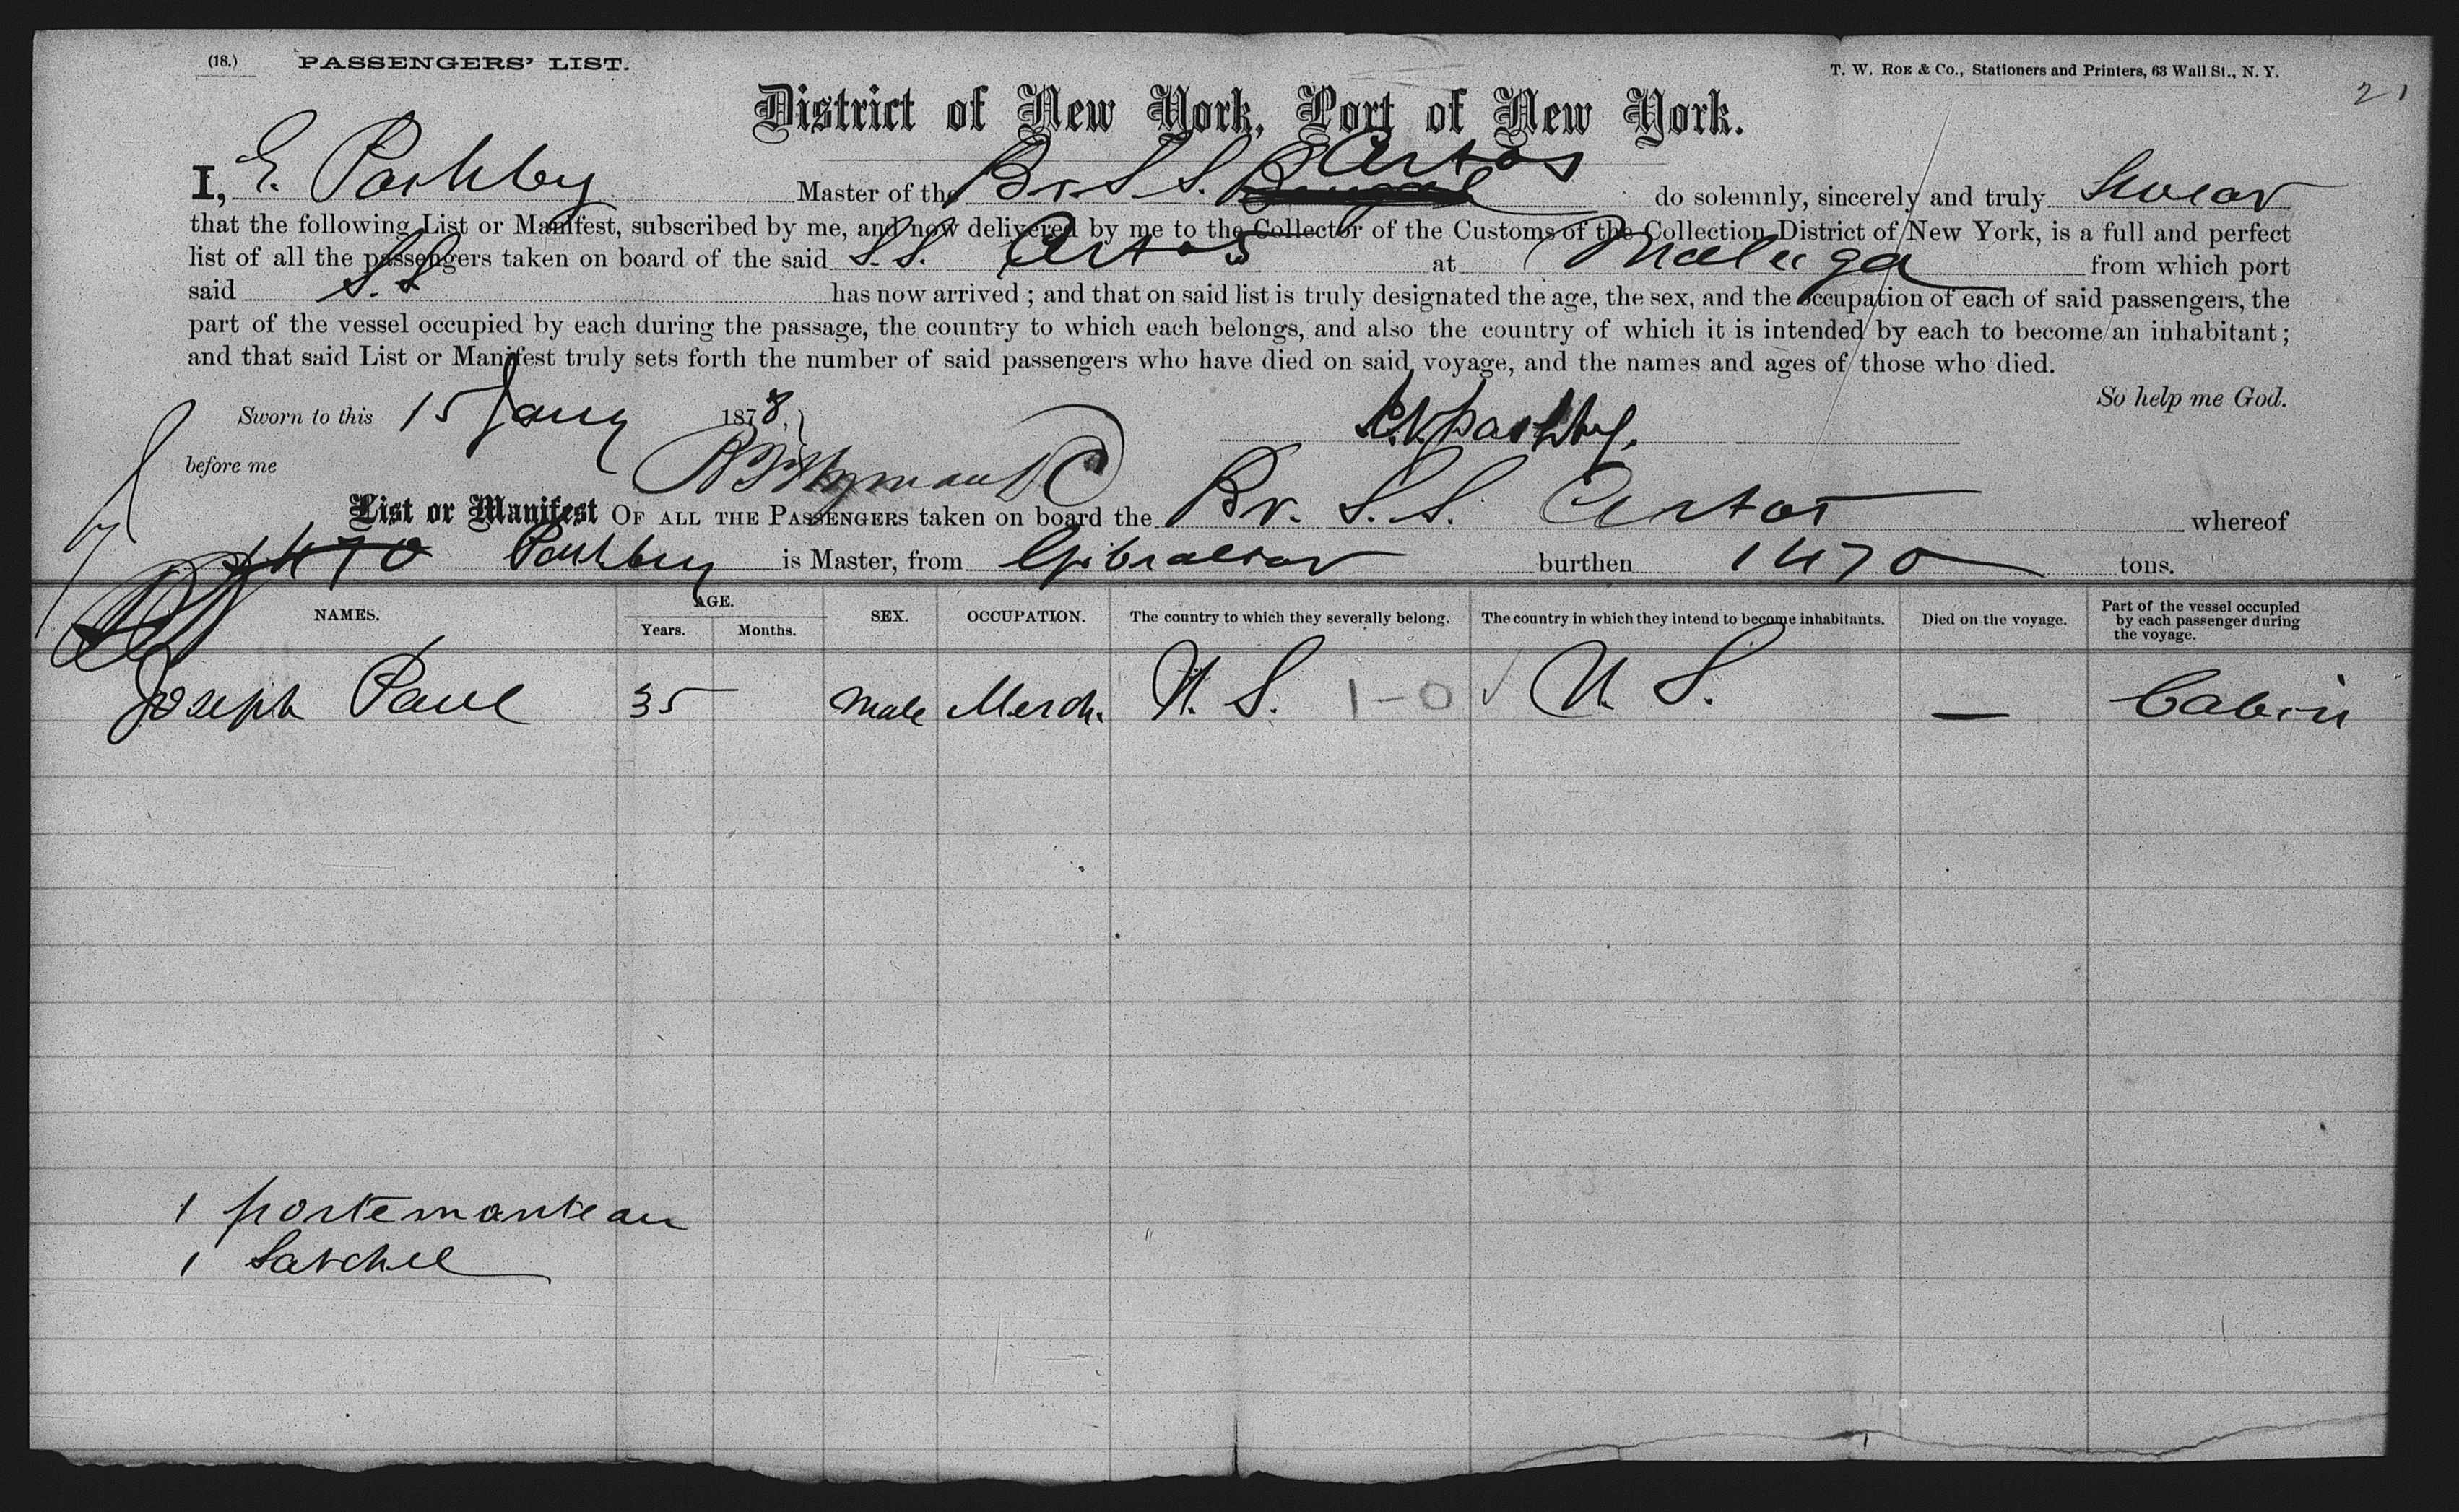 (18.) PASSENGERS' LIST. T. W. ROE & CO., Stationers and Printers, 63 Wall St., N. Y.
21
District of New York, Port of New York.
I, E. Pashby Master of the Br. S. S. Artos do solemnly, sincerely and truly Swear
that the following List or Manifest, subscribed by me, and now delivered by me to the Collector of the Customs of the Collection District of New York, is a full and perfect
list of all the passengers taken on board of the said S.S. Artos at Malaga from which port
said S.S has now arrived ; and that on said list is truly designated the age, the sex, and the occupation of each of said passengers, the
part of the vessel occupied by each during the passage, the country to which each belongs, and also the country of which it is intended by each to become an inhabitant ;
and that said List or Manifest truly sets forth the number of said passengers who have died on said voyage, and the names and ages of those who died.
So help me God.
Sworn to this 15 Jany 1878, Pashby.
before me
List or Manifest OF ALL THE PASSENGERS taken on board the Br. S. S. Artos whereof
1470 Pashby is Master, from Gibraltar burthen 1470 tons.
NAMES. AGE. Years. Months. SEX. OCCUPATION. The country to which they severally belong. The country in which they intend to become inhabitants. Died on the voyage. Part of the vessel occupied by each passenger during the voyage.
Joseph Paul 35 Male Merch. U. S. 1-0 ✓ U. S. — Cabin
1 portemanteau
1 Satchel